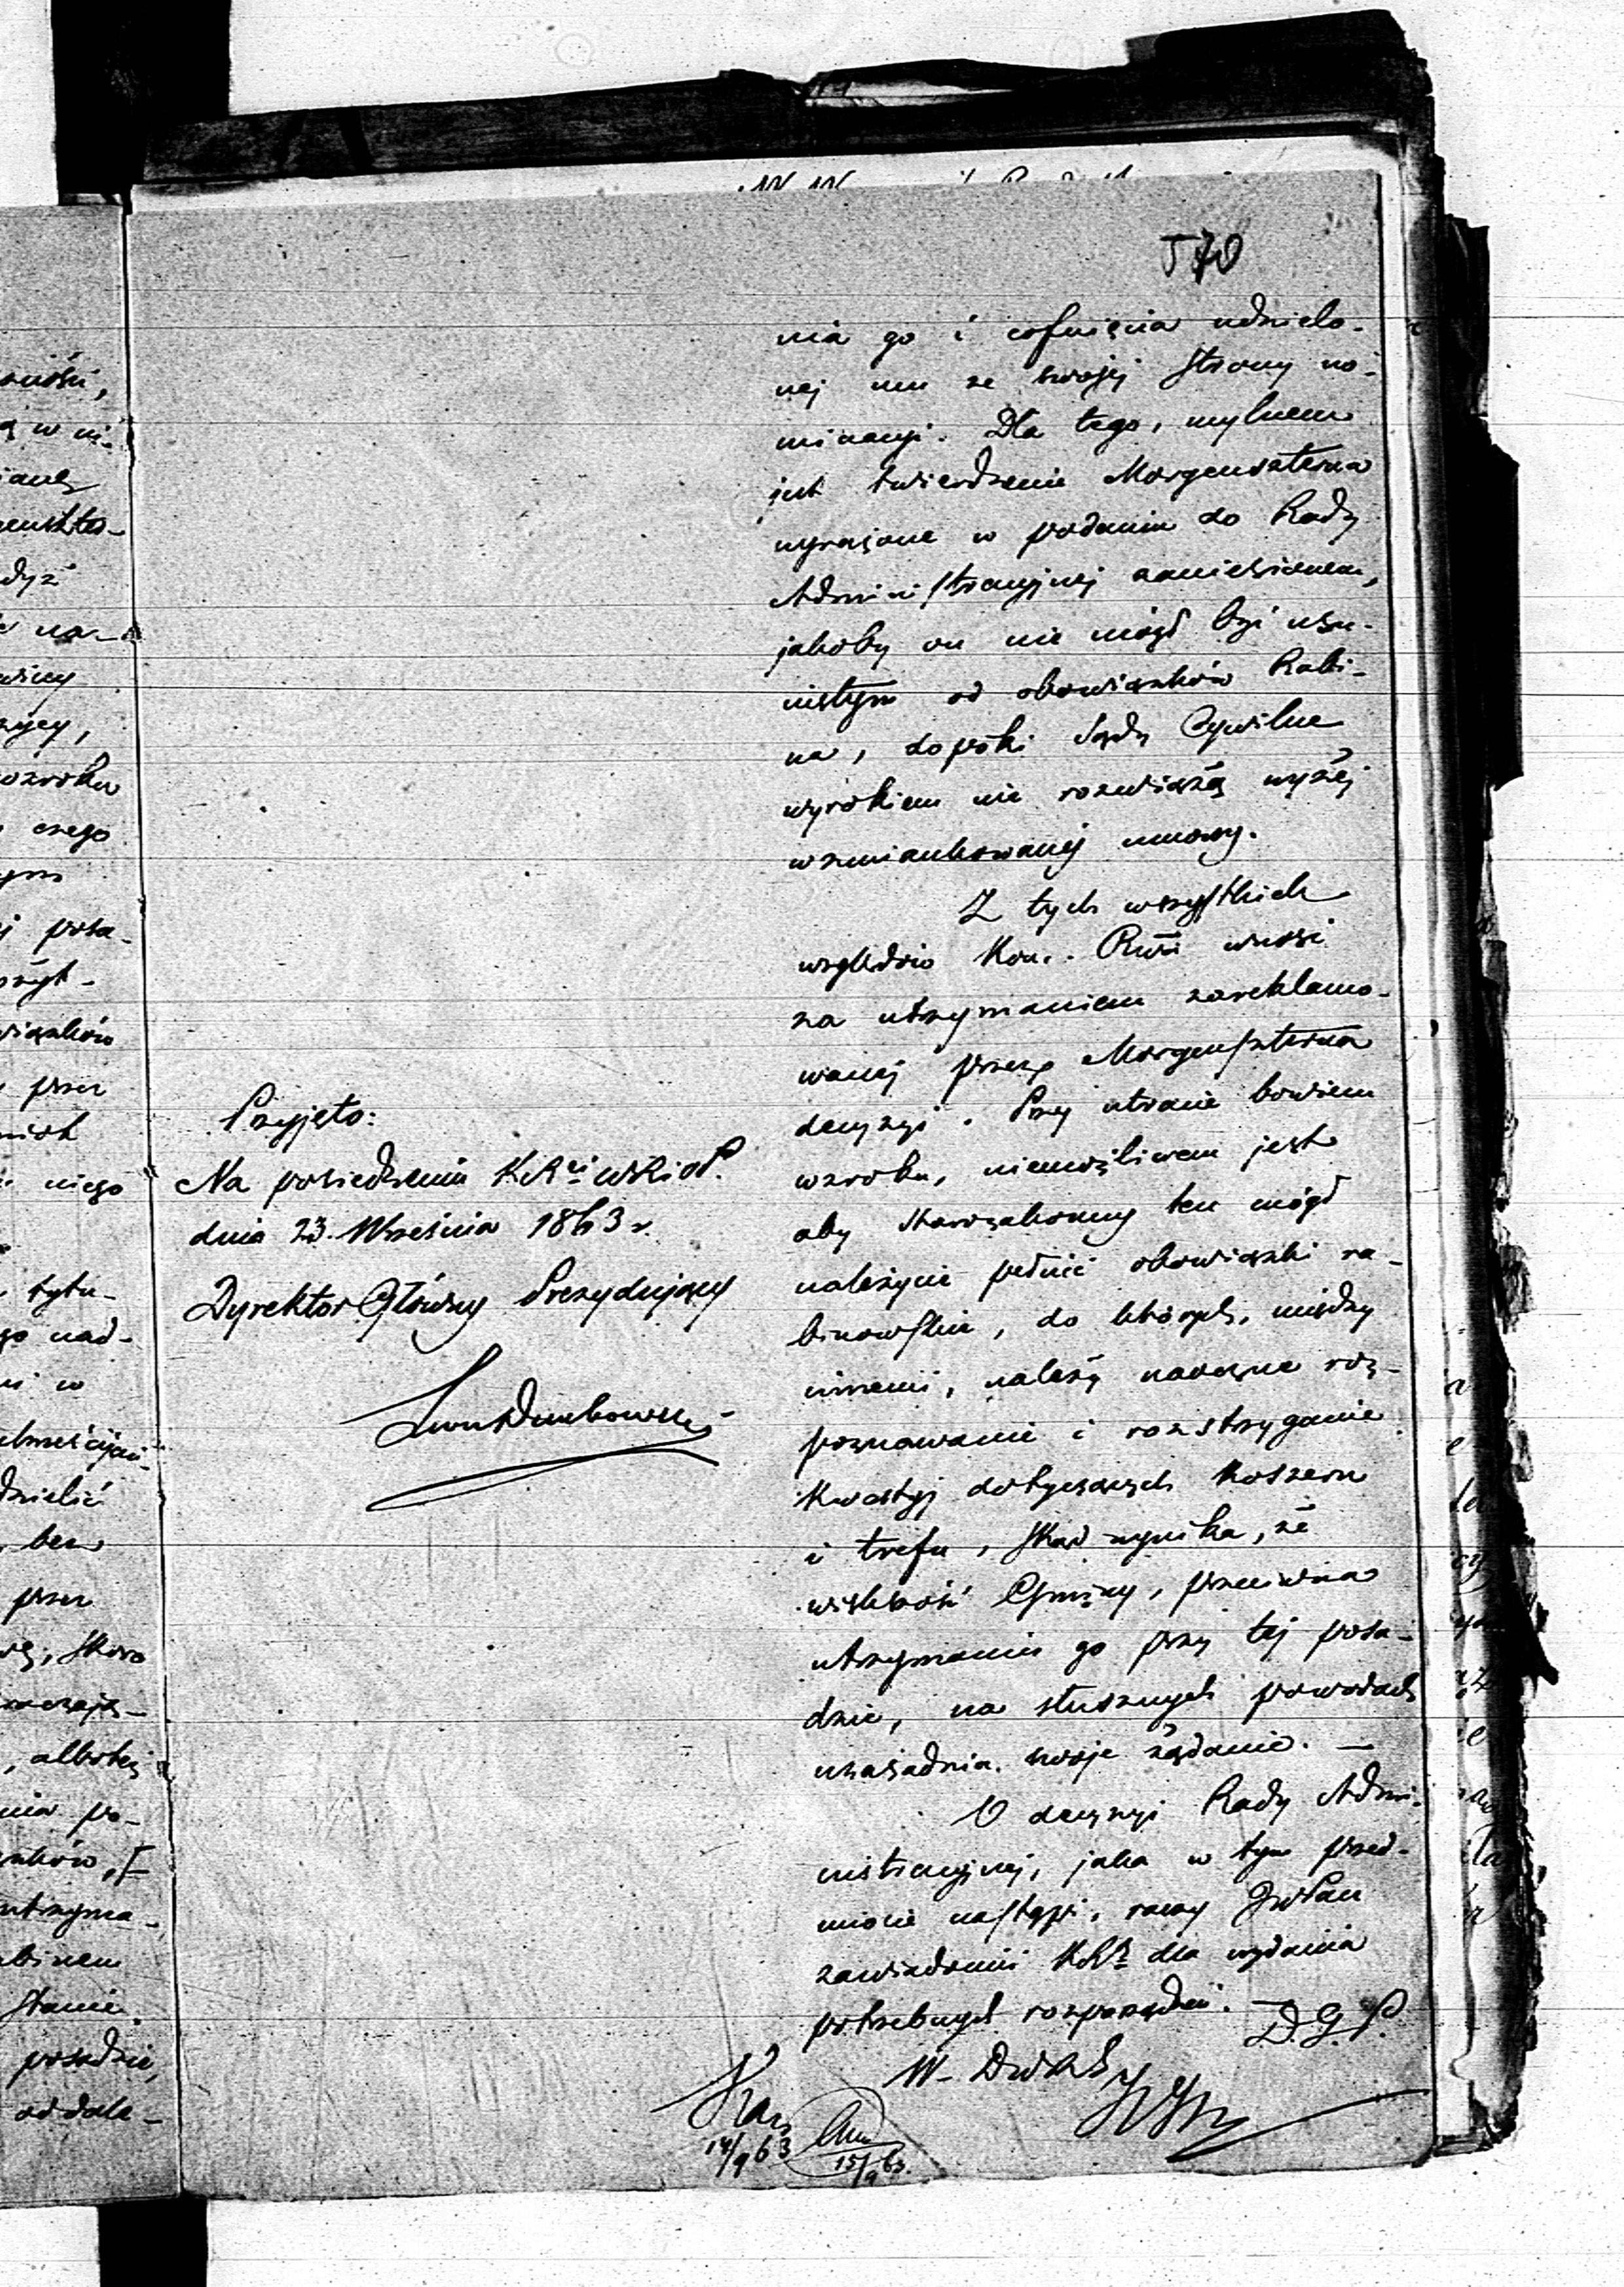 570
nia go i cofnięcia udzielo-
nej mu ze swojej strony no-
minacyi. Dla tego, mylnem
jest twierdzenie Morgensterna
wyrażone w podaniu do Rady
Administracyjnej zaniesionem,
jakoby on nie mógł być usu-
niętym od obowiązków Rabi-
na, dopóki Sądy Cywilne
wyrokiem nie rozwiążą wyżej
wzmiankowanej umowy.
Z tych wszystkich
względów Kom. Rząd. wnosi
za utrzymaniem zareklamo-
wanej przez Morgenszterna
decyzyi. Przy utracie bowiem
wzroku, niemożliwem jest
aby starozakonny ten mógł
należycie pełnić obowiązki ra-
binowskie, do których, między
innemi, należy naoczne roz-
poznawanie i rozstrzyganie
kwestyj dotyczących koszeru
i trefu, skąd wynika, że
większość Gminy, przeciwna
utrzymaniu go przy tej posa-
dzie, na słusznych powodach
uzasadnia swoje żądanie. —
O decyzyi Rady Admi-
nistracyjnej, jaka w tym przed-
miocie nastąpi, raczy JWPan
zawiadomić KRz dla wydania
potrzebnych rozporządzeń. —
D.G.P.
W. D.
14/9 63
15/9 63.
Przyjęto:
Na posiedzeniu KRi WRiOP.
dnia 23. Września 1863 r.
Dyrektor Główny Prezydujący
ności,
dyż
na-
wzroku
czego
posa-
wiązków
przez
niego
tytu-
go nad-
w
dzielić
bez
przez
skoro
, albo też
nia po-
utrzyma-
stanie
posadzie,
oddale-